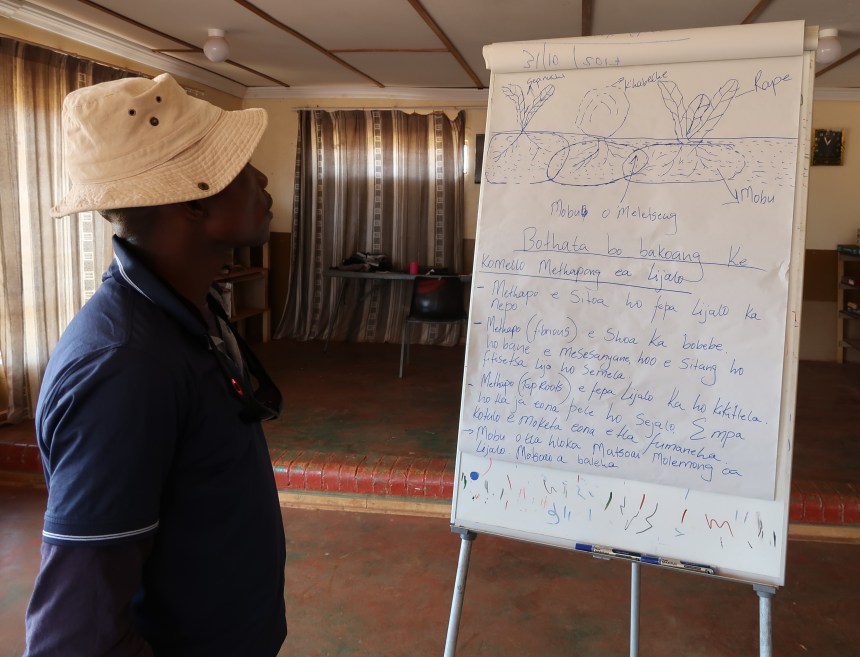 31/10
Khabeche
Rape
Mobu
Mobu o Meletseng
Bothata bo bakoang Ke
Komello Methapong ea lijalo
- Methapo e Sitoa ho fepa lijalo ka
nepo
- Methapo (fibrous) e Shoa Ka bobebe.
ho bane e mesesanyane, hoo e Sitang ho
fisetsa lijo ho Semela.
- Methapo (Tap Roots) e fepa lijalo Ka ho kikitlela.
ho tla ja eona pele ho Sejalo. Empa
Kotulo e moketa eona e tla fumaneha.
→ Mobu o tla hloka Matsoai / Molemong oa
lijalo. Matsoai a baleha